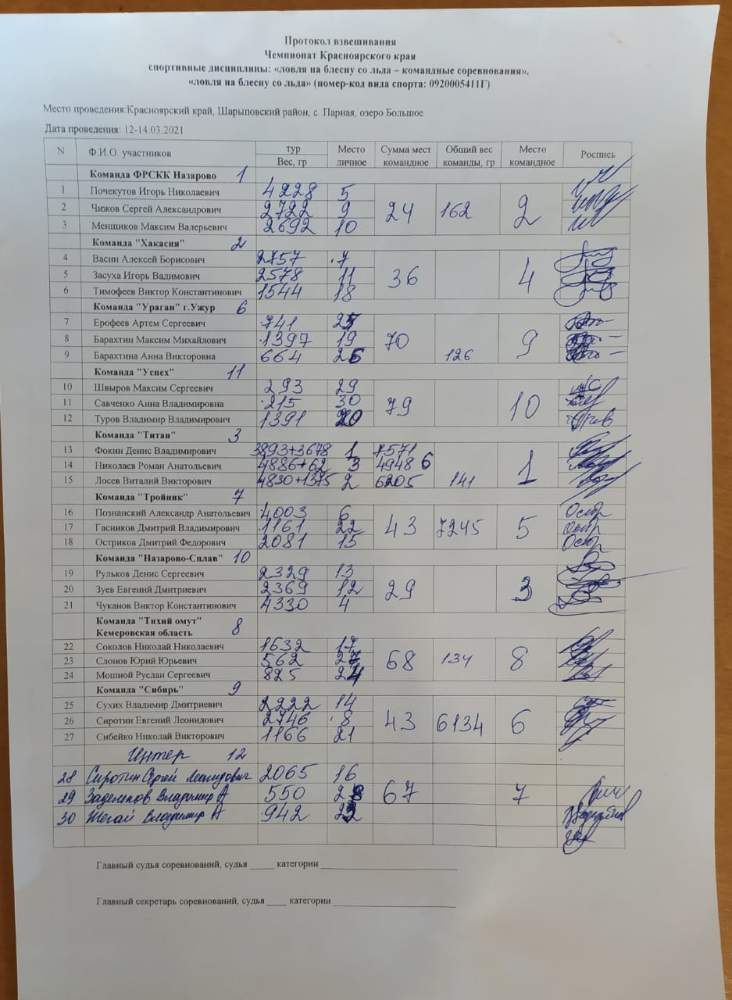 Протокол взвешивания
Чемпионат Красноярского края
спортивные дисциплины: «ловля на блесну со льда – командные соревнования»,
«ловля на блесну со льда» (номер-код вида спорта: 0920005411Г)
Место проведения:Красноярский край, Шарыповский район, с. Парная, озеро Большое
Дата проведения: 12-14.03.2021
N Ф.И.О. участников тур Вес, гр Место личное Сумма мест командное Общий вес команды, гр Место командное Роспись
Команда ФРСКК Назарово 1
1 Почекутов Игорь Николаевич 4228 5
2 Чижов Сергей Александрович 2722 9 24 162 2
3 Менщиков Максим Валерьевич 2692 10
Команда "Хакасия" 2
4 Васин Алексей Борисович 2757 7
5 Засуха Игорь Вадимович 2578 11 36 4
6 Тимофеев Виктор Константинович 1544 18
Команда "Ураган" г.Ужур 6
7 Ерофеев Артем Сергеевич 741 25
8 Барахтин Максим Михайлович 1397 19 70 9
9 Барахтина Анна Викторовна 664 26 126
Команда "Успех" 11
10 Швыров Максим Сергеевич 293 29
11 Савченко Анна Владимировна 215 30 79 10
12 Туров Владимир Владимирович 1391 20
Команда "Титан" 3
13 Фокин Денис Владимирович 3893+3678 1 7571
14 Николаев Роман Анатольевич 4886+62 3 4948 6 1
15 Лосев Виталий Викторович 4830+1375 2 6205 141
Команда "Тройник" 7
16 Познанский Александр Анатольевич 4003 6
17 Гасников Дмитрий Владимирович 1161 22 43 7245 5
18 Остриков Дмитрий Федорович 2081 15
Команда "Назарово-Сплав" 10
19 Рульков Денис Сергеевич 2329 13
20 Зуев Евгений Дмитриевич 2369 12 29 3
21 Чуканов Виктор Константинович 4330 4
Команда "Тихий омут" 8
Кемеровская область
22 Соколов Николай Николаевич 1632 17
23 Слонов Юрий Юрьевич 562 27 68 134 8
24 Мошной Руслан Сергеевич 825 24
Команда "Сибирь" 9
25 Сухих Владимир Дмитриевич 2222 14
26 Сиротин Евгений Леонидович 2746 8 43 6134 6
27 Сибейко Николай Викторович 1166 21
Интер 12
28 Сиротин Сергей Леонидович 2065 16
29 Владимир А 550 28 67 7
30 Владимир А 942 23
Главный судья соревнований, судья ____ категории ____
Главный секретарь соревнований, судья ____ категории ____